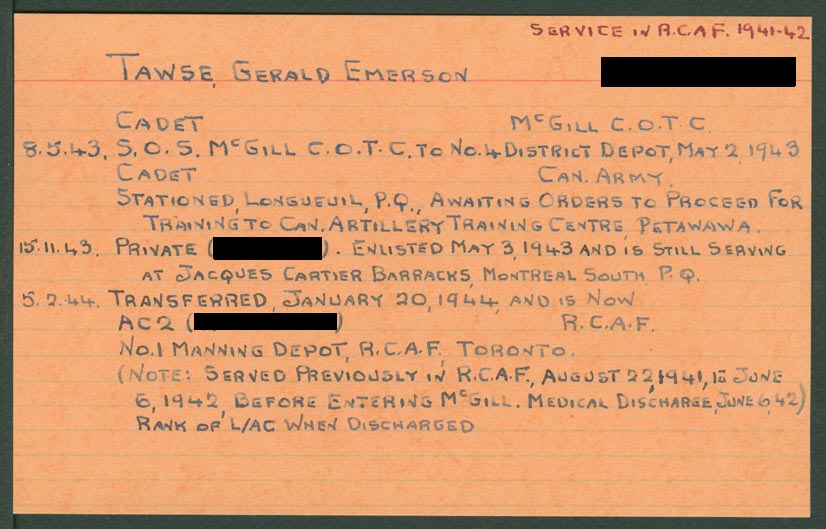 SERVICE IN R.C.A.F. 1941-42
TAWSE, GERALD EMERSON
CADET McGILL C.O.T.C.
8.5.43. S.O.S. McGILL C.O.T.C. TO No.4 DISTRICT DEPOT, MAY 2, 1943
CADET CAN. ARMY.
STATIONED, LONGUEUIL, P.Q., AWAITING ORDERS TO PROCEED FOR
TRAINING TO CAN. ARTILLERY TRAINING CENTRE, PETAWAWA.
15.11.43. PRIVATE ( ). ENLISTED MAY 3, 1943 AND IS STILL SERVING
AT JACQUES CARTIER BARRACKS, MONTREAL SOUTH. P.Q.
5.2.44. TRANSFERRED, JANUARY 20, 1944, AND IS NOW
AC2 ( ) R.C.A.F.
No.1 MANNING DEPOT, R.C.A.F., TORONTO.
(NOTE: SERVED PREVIOUSLY IN R.C.A.F., AUGUST 22, 1941, TO JUNE
6, 1942, BEFORE ENTERING McGILL. MEDICAL DISCHARGE, JUNE 6, 42)
RANK OF L/AC WHEN DISCHARGED